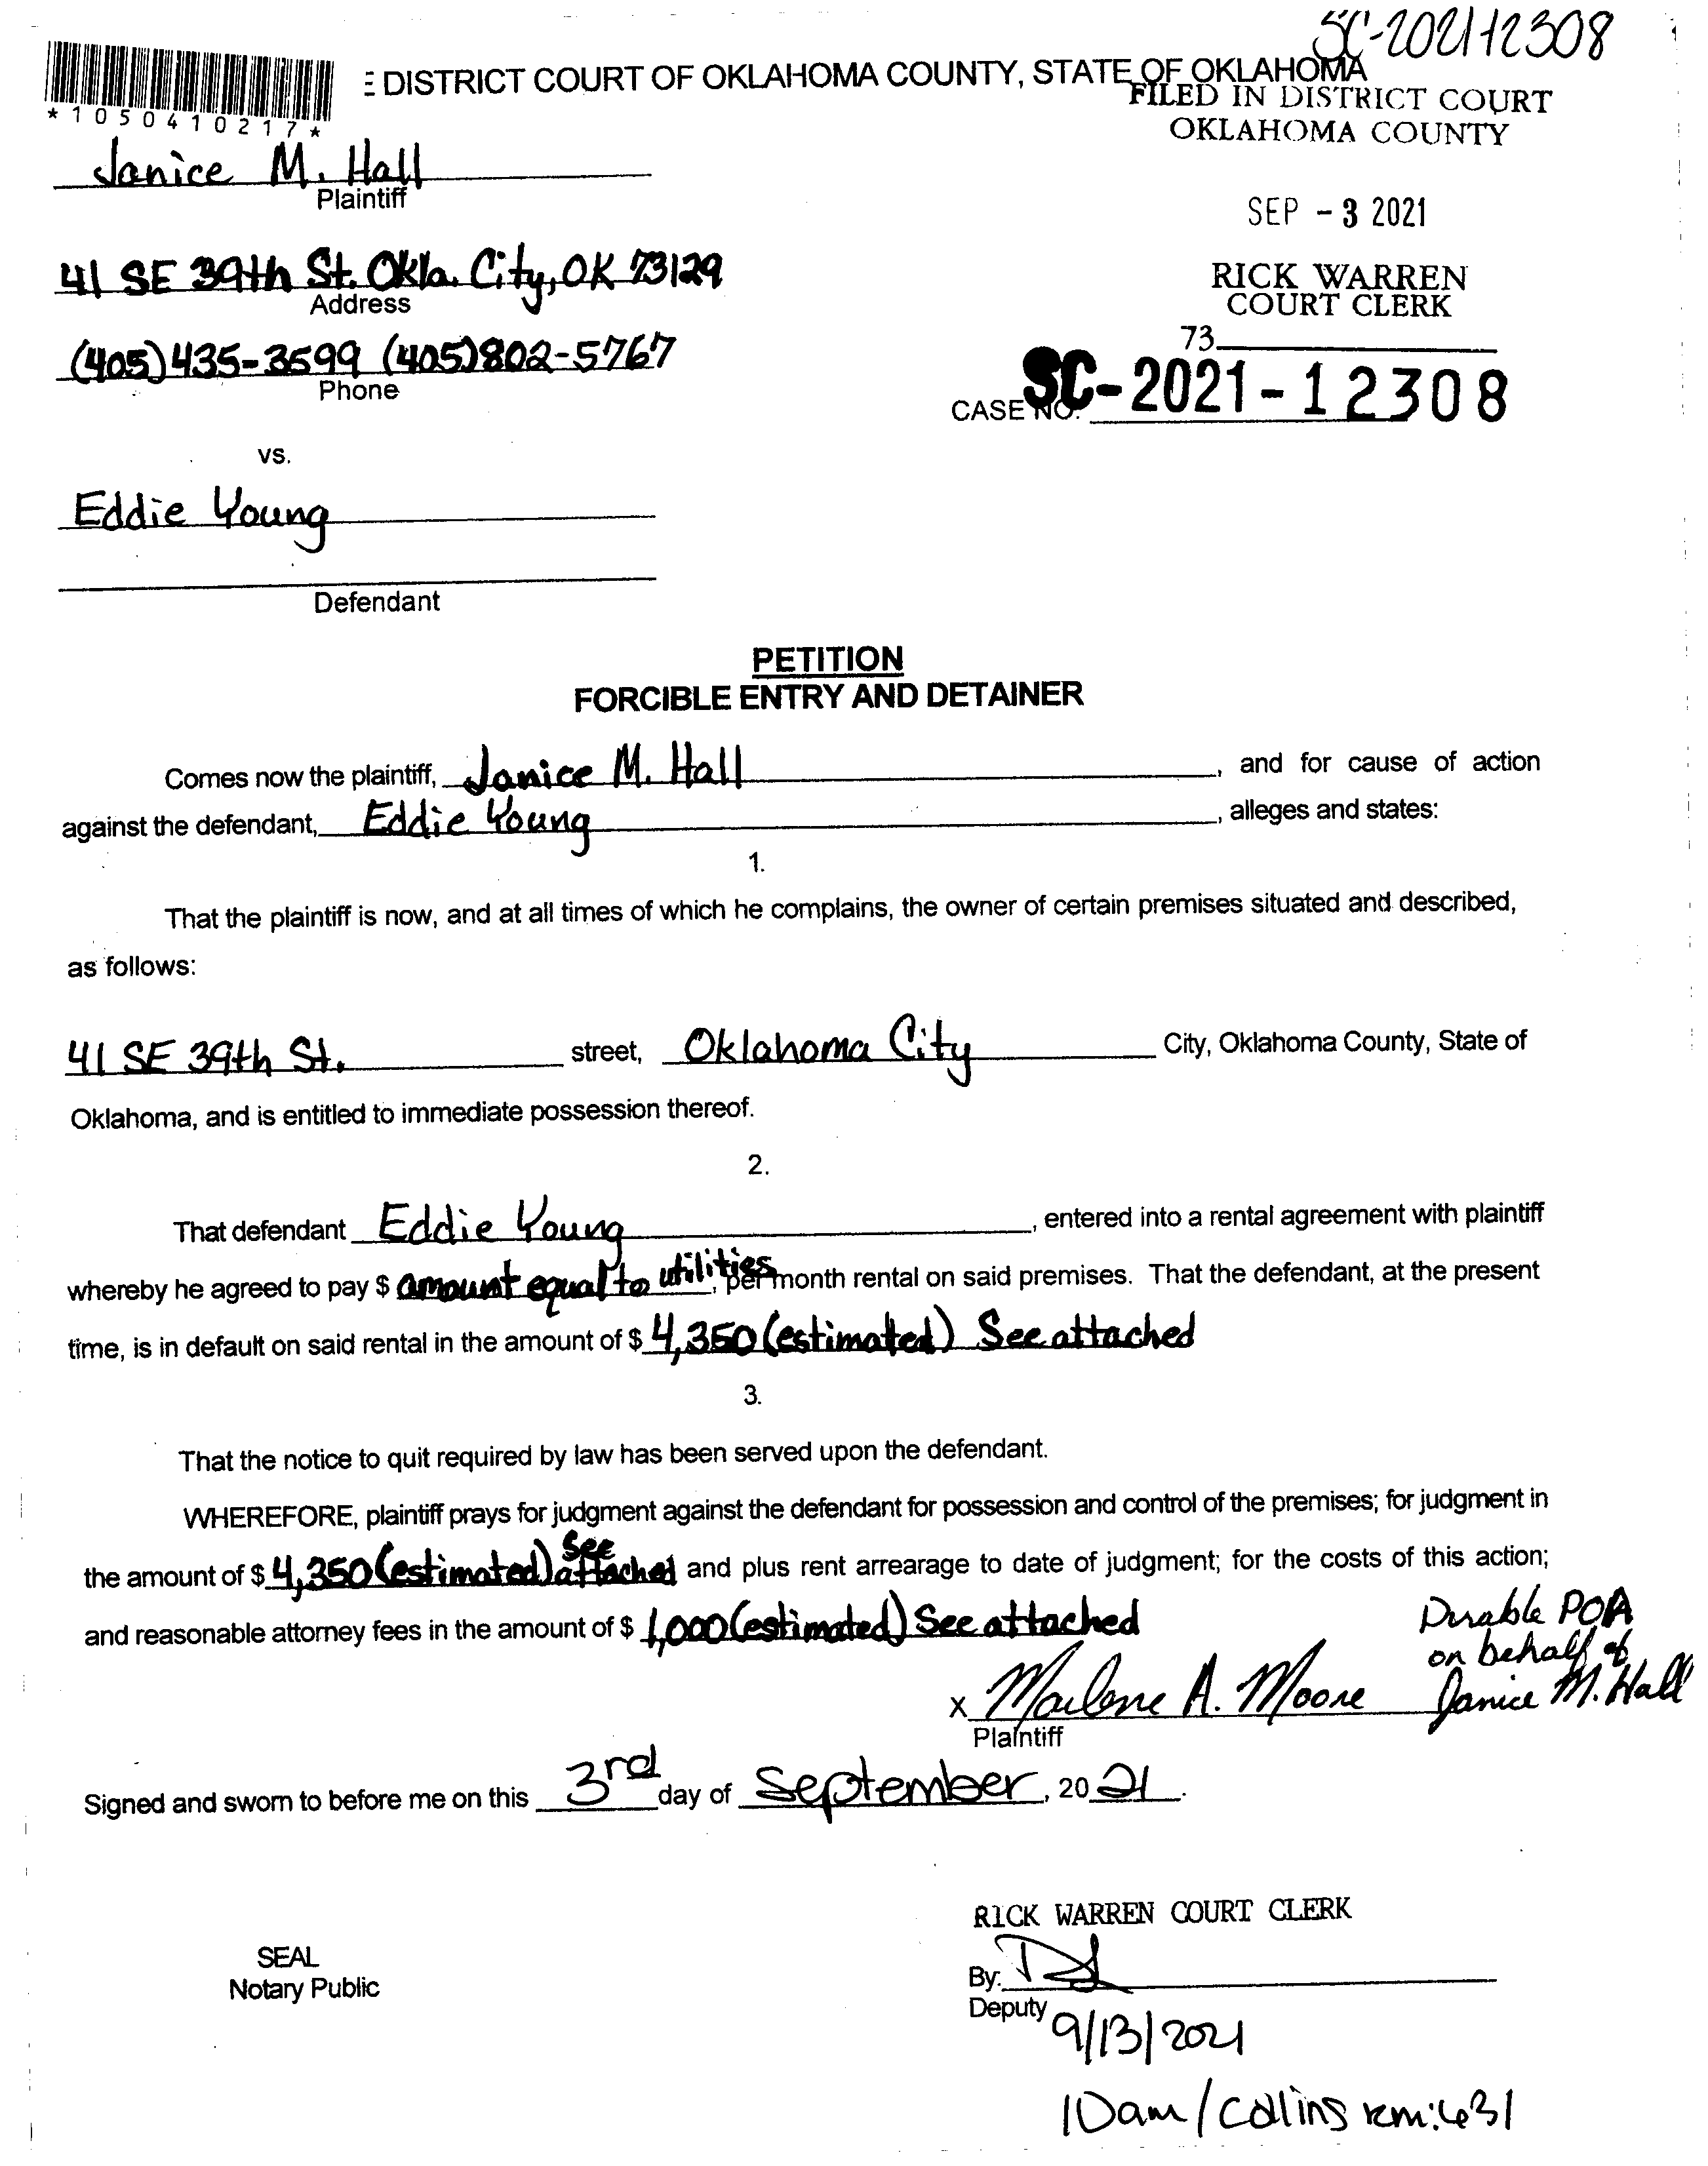 SC-202112308
E DISTRICT COURT OF OKLAHOMA COUNTY, STATE OF OKLAHOMA
FILED IN DISTRICT COURT
OKLAHOMA COUNTY
*1050410217*
Janice M. Hall
Plaintiff
SEP - 3 2021
41 SE 39th St. Okla. City, OK 73129
Address
RICK WARREN
COURT CLERK
73
(405) 435-3599 (405) 802-5767
Phone
CASE NO. SC-2021-12308
vs.
Eddie Young
Defendant
PETITION
FORCIBLE ENTRY AND DETAINER
Comes now the plaintiff, Janice M. Hall, and for cause of action
against the defendant, Eddie Young, alleges and states:
1.
That the plaintiff is now, and at all times of which he complains, the owner of certain premises situated and described,
as follows:
41 SE 39th St. street, Oklahoma City City, Oklahoma County, State of
Oklahoma, and is entitled to immediate possession thereof.
2.
That defendant Eddie Young, entered into a rental agreement with plaintiff
whereby he agreed to pay $ amount equal to utilities, per month rental on said premises. That the defendant, at the present
time, is in default on said rental in the amount of $ 4,350 (estimated) See attached
3.
That the notice to quit required by law has been served upon the defendant.
WHEREFORE, plaintiff prays for judgment against the defendant for possession and control of the premises; for judgment in
the amount of $ 4,350 (estimated) See attached and plus rent arrearage to date of judgment; for the costs of this action;
and reasonable attorney fees in the amount of $ 1,000 (estimated) See attached
Durable POA
on behalf of
Janice M. Hall
X Marlene A. Moore
Plaintiff
Signed and sworn to before me on this 3rd day of September, 2021.
RICK WARREN COURT CLERK
SEAL
Notary Public
By:
Deputy
9/13/2021
10am / Collins rm: 631